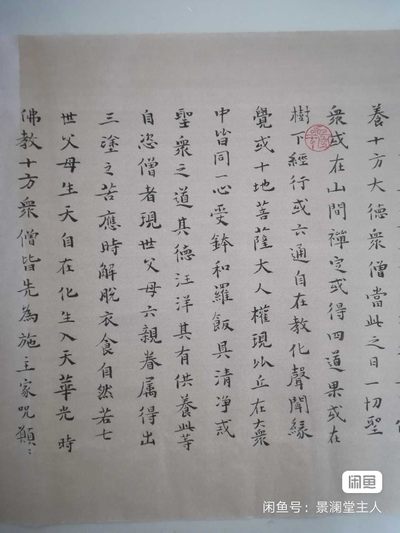 養十方大德衆僧當此之日一切聖
衆或在山間禪定或得四道果或在
樹下經行或六通自在教化聲聞緣
覺或十地菩薩大人權現比丘在大衆
中皆同一心受鉢和羅飯具清淨戒
聖衆之道其德汪洋其有供養此等
自恣僧者現世父母六親眷属得出
三塗之苦應時解脫衣食自然若七
世父母生天自在化生入天華光時
佛教十方衆僧皆先為施主家咒願〻
闲鱼
闲鱼号：景澜堂主人